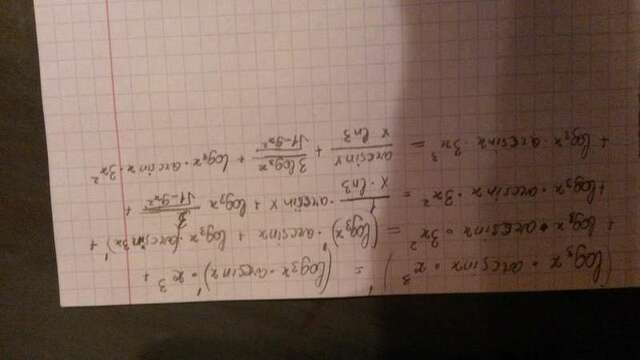 (log₃x · arcsinx · x³)' = (log₃x · arcsinx)' · x³ +
+ log₃x · arcsinx · 3x² = (log₃x)' · arcsinx + log₃x · (arcsin3x)' +
+ log₃x · arcsinx · 3x² = 1/(x · ln3) · arcsinx + log₃x · 3/√(1-9x²) +
+ log₃x · arcsinx · 3x³ = arcsinx/(x ln3) + 3log₃x/√(1-9x²) + log₃x · arcsinx · 3x²